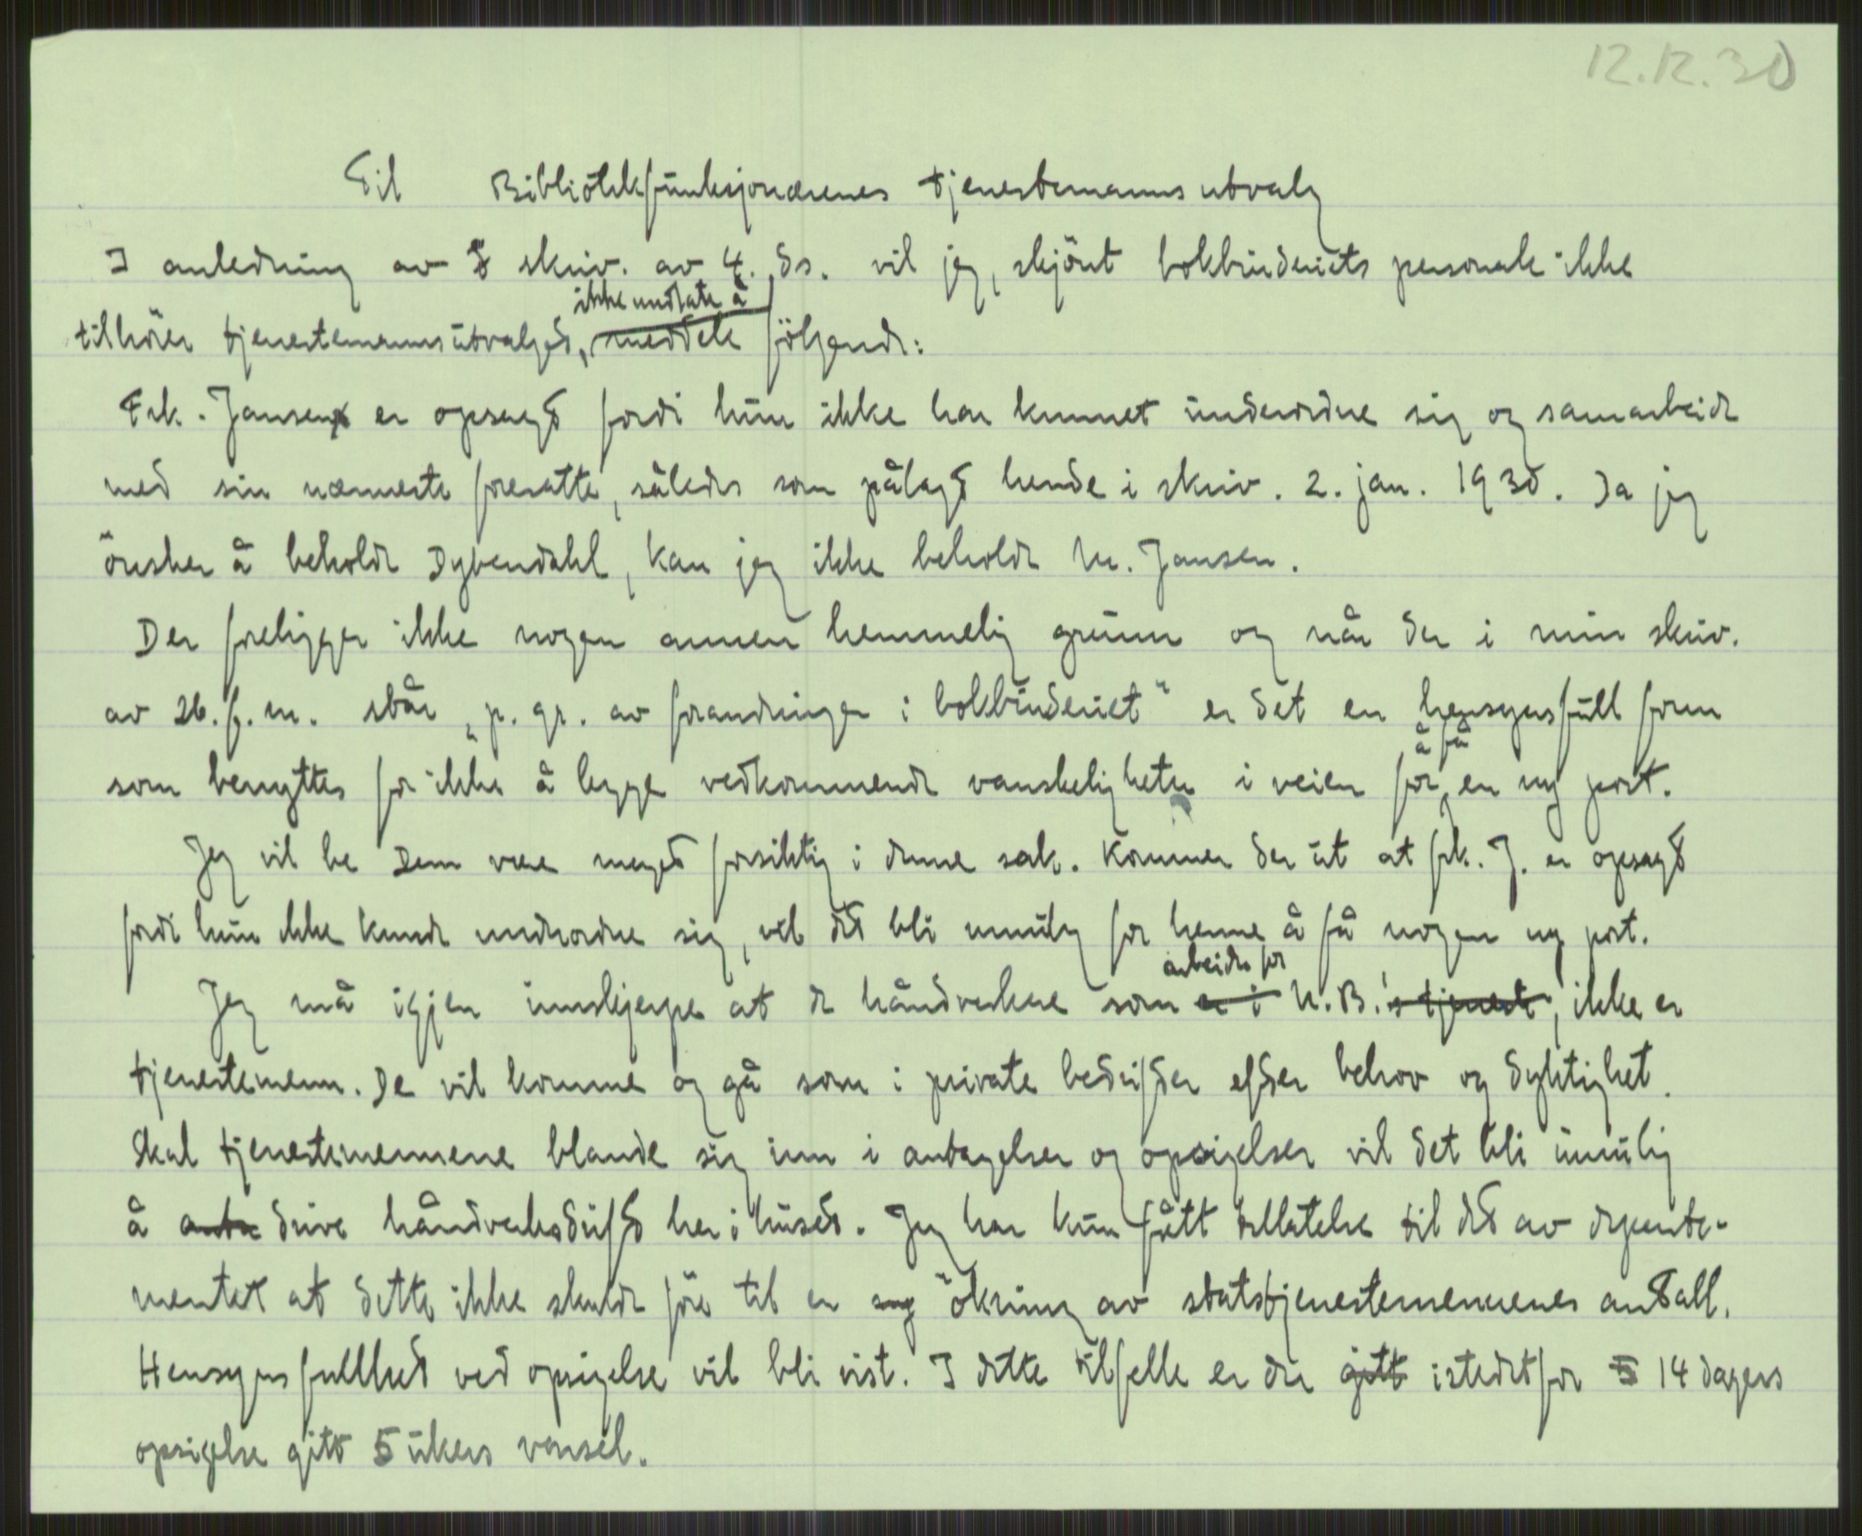 12.12.30
Til Bibliotekfunksjonærenes tjenestemannsutvalg
I anledning av skriv. av 4. ds. vil jeg, skjönt bokbinderiets personale ikke
ikke undlate å
tilhörer tjenestemannsutvalget, meddele fölgende:
Frk. Jansen er opsagt fordi hun ikke har kunnet underordne sig og samarbeide
med sin nærmeste foresatte, således som pålagt hende i skriv. 2. jan. 1930. Da jeg
önsker å beholde Dybendahl, kan jeg ikke beholde M. Jansen.
Der foreligger ikke nogen annen hemmelig grunn og når der i min skriv.
av 26. f. m. står „p. gr. av forandringer i bokbinderiet" er det en hensynsfull form
å få
som benyttes for ikke å legge vedkommende vanskeligheter i veien for en ny post.
Jeg vil be Dem være meget forsiktig i denne sak. Kommer der ut at frk. J. er opsagt
fordi hun ikke kunde underordne sig, vil det bli umulig for henne å få nogen ny post.
arbeider for
Jeg må igjen innskjerpe at de håndverkere som er i U.B.'s tjeneste, ikke er
tjenestemenn. De vil komme og gå som i private bedrifter efter behov og dyktighet.
Skal tjenestemennene blande sig inn i antagelser og opsigelser vil det bli umulig
å anta drive håndverksdrift her i huset. Jeg har kun fått tillatelse til det av departe-
mentet at dette ikke skulde före til en ökning av statstjenestemennenes antall.
Hensynsfullhet ved opsigelse vil bli vist. I dette tilfelle er der gitt istedetfor 5 14 dagers
opsigelse gitt 5 ukers varsel.